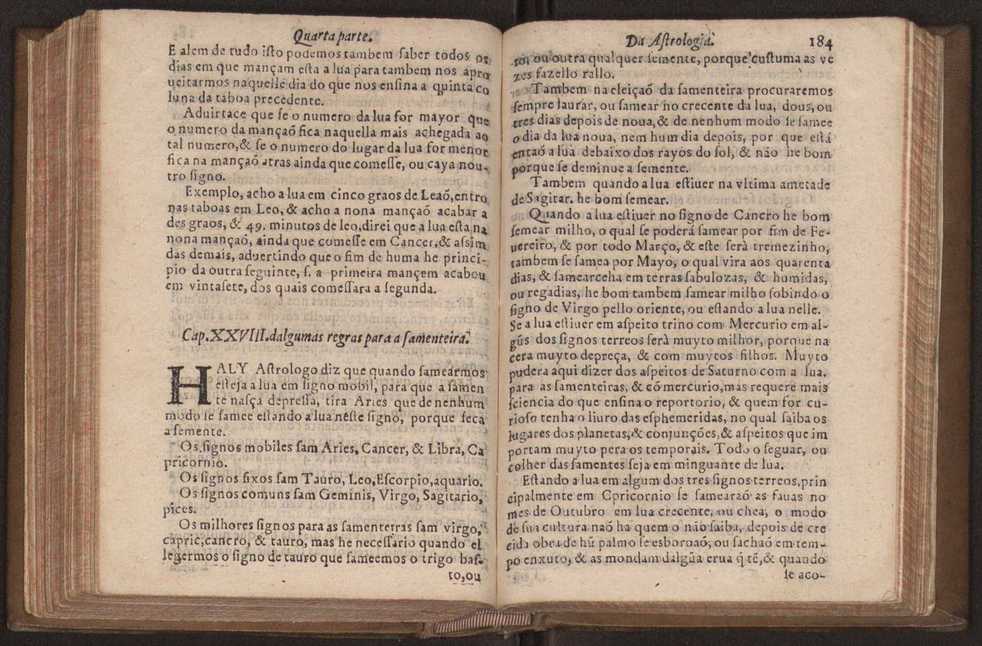 Quarta parte.
E alem de tudo isto podemos tambem saber todos os
dias em que mançam esta a lua para tambem nos apro
ueitarmos naquelle dia do que nos ensina a quinta co
luna da taboa precedente.
Aduirtace que se o numero da lua for mayor que
o numero da mançaõ fica naquella mais achegada ao
tal numero,& se o numero do lugar da lua for menor
fica na mançaõ atras ainda que comesse, ou caya nou-
tro signo.
Exemplo, acho a lua em cinco graos de Leaõ,entro
nas taboas em Leo, & acho a nona mançaõ acabar a
des graos, & 49. minutos de leo,direi que a lua esta na
nona mançaõ, ainda que comesse em Cancer,& assim
das demais, aduertindo que o fim de huma he princi-
pio da outra seguinte, s. a primeira mançem acabou
em vintasete, dos quais comessara a segunda.
Cap.XXVIII.dalgumas regras para a samenteira.
HALY Astrologo diz que quando samearmos
esteja a lua em signo mobil, para que a samen
te nasça depressa, tira Aries que de nenhum
modo se samee estando a lua neste signo, porque seca
a semente.
Os signos mobiles sam Aries, Cancer, & Libra, Ca
pricornio.
Os signos fixos sam Tauro, Leo,Escorpio,aquario.
Os signos comuns sam Geminis, Virgo, Sagitario,
pices.
Os milhores signos para as samenteiras sam virgo,
capric,cancro, & tauro, mas he necessario quando el
legermos o signo de tauro que sameemos o trigo bas-
to,ou
Da Astrologia. 184
to, ou outra qualquer semente, porque custuma as ve
zes fazello rallo.
Tambem na eleiçaõ da samenteira procuraremos
sempre laurar, ou samear no crecente da lua, dous, ou
tres dias depois de noua,& de nenhum modo se samee
o dia da lua noua, nem hum dia depois, por que está
entaõ a lua debaixo dos rayos do sol, & não he bom
porque se deminue a semente.
Tambem quando a lua estiuer na vltima ametade
de Sagitar. he bom semear.
Quando a lua estiuer no signo de Cancro he bom
semear milho, o qual se poderá samear por fim de Fe-
uereiro, & por todo Março, & este serà tremezinho,
tambem se samea por Mayo, o qual vira aos quarenta
dias, & samearceha em terras sabulozas, & humidas,
ou regadias, he bom tambem samear milho sobindo o
signo de Virgo pello oriente, ou estando a lua nelle.
Se a lua estiuer em aspeito trino com Mercurio em al-
gũs dos signos terreos serà muyto milhor, porque na
cera muyto depreça, & com muytos filhos. Muyto
pudera aqui dizer dos aspeitos de Saturno com a lua,
para as samenteiras, & cõ mercurio,mas requere mais
sciencia do que ensina o reportorio, & quem for cu-
rioso tenha o liuro das esphemeridas, no qual saiba os
lugares dos planetas,& conjunções,& aspeitos que im
portam muyto pera os temporais. Todo o seguar, ou
colher das samentes seja em minguante de lua.
Estando a lua em algum dos tres signos terreos,prin
cipalmente em Cpricornio se samearaõ as fauas no
mes de Outubro em lua crecente, ou chea, o modo
de sua cultura naõ ha quem o não saiba, depois de cre
cida obra de hũ palmo se esboroaõ, ou sachaõ em tem-
po enxuto, & as mondam dalgũa erua q̃ tẽ,& quando
se aco-